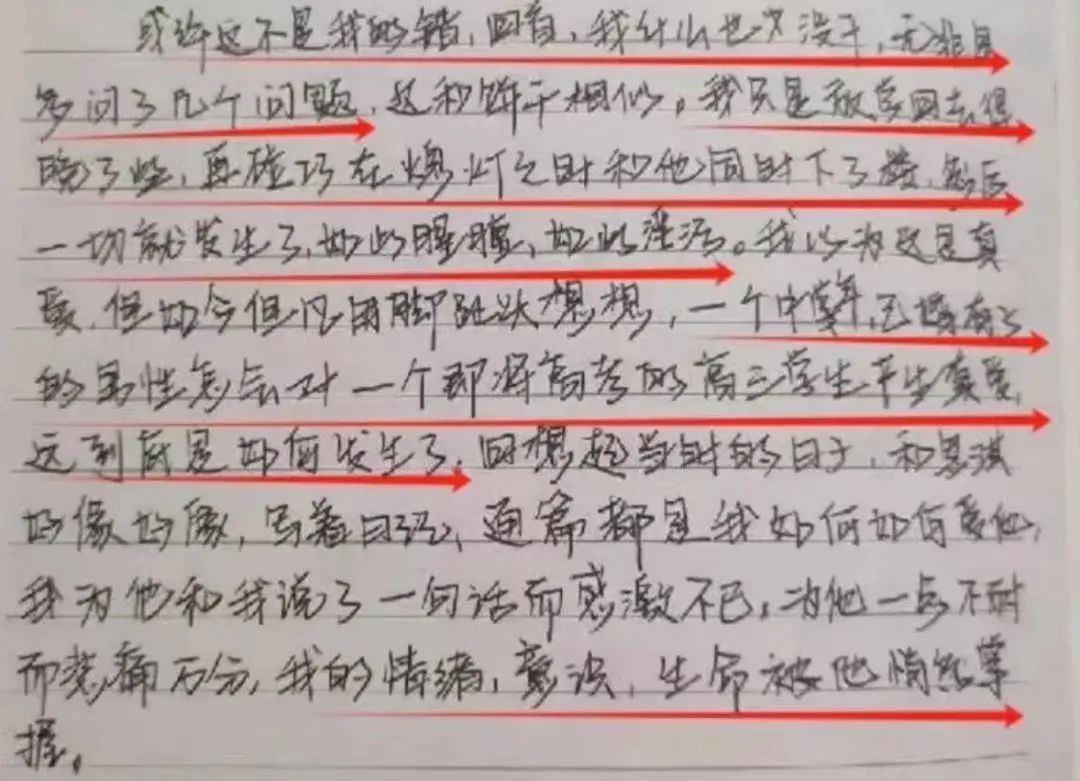 或许这不是我的错,回首,我什么也没干,无非是
多问了几个问题,这和饼干相似。我只是放学回去得
晚了些,再碰巧在熄灯之时和他同时下了楼,然后
一切就发生了,如此腥膻,如此淫污。我以为这是真
爱,但如今但凡用脚趾头想想,一个中年,已婚有子
的男性怎会对一个即将高考的高三学生产生真爱,
这到底是如何发生了,回想起当时的日子,和思琪
好像好像,写着日记,通篇都是我如何如何爱他,
我为他和我说了一句话而感激不已,为他一点不耐
而悲痛万分,我的情绪,意识,生命被他悄然掌
握。